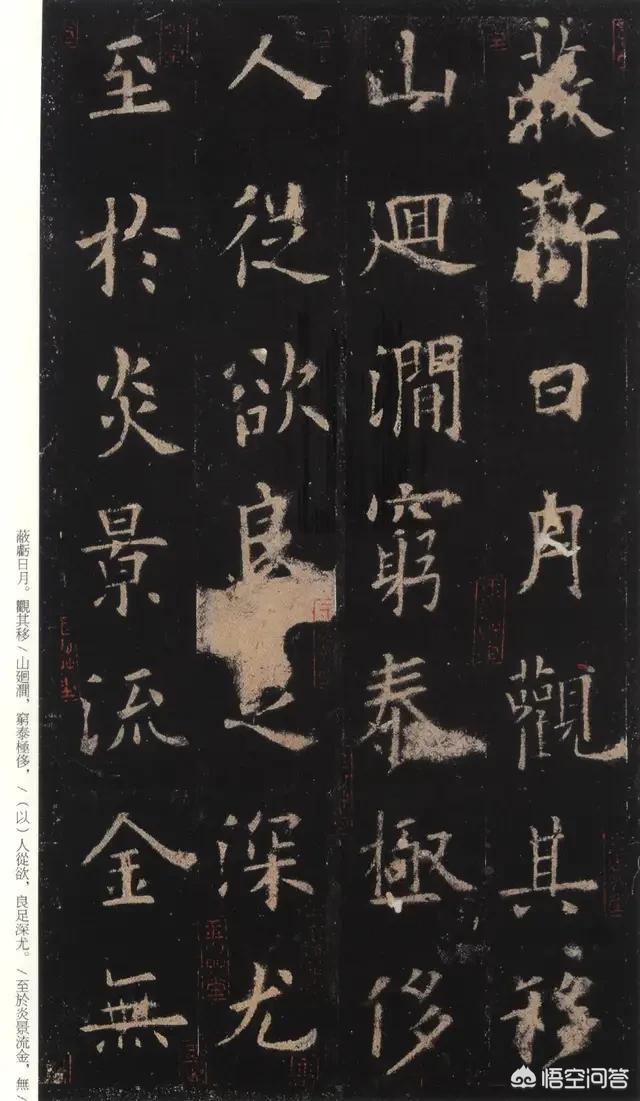 蔽虧日月觀其移
山迴澗窮泰極侈
人從欲良足深尤
至於炎景流金無
蔽虧日月。觀其移\山廻澗，窮泰極侈，\（以）人從欲，良足深尤。\至於炎景流金，無\
悟空问答